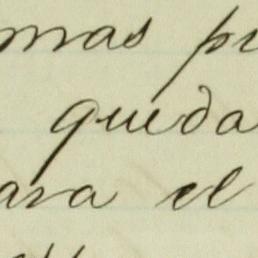 mas pr
queda
ara el